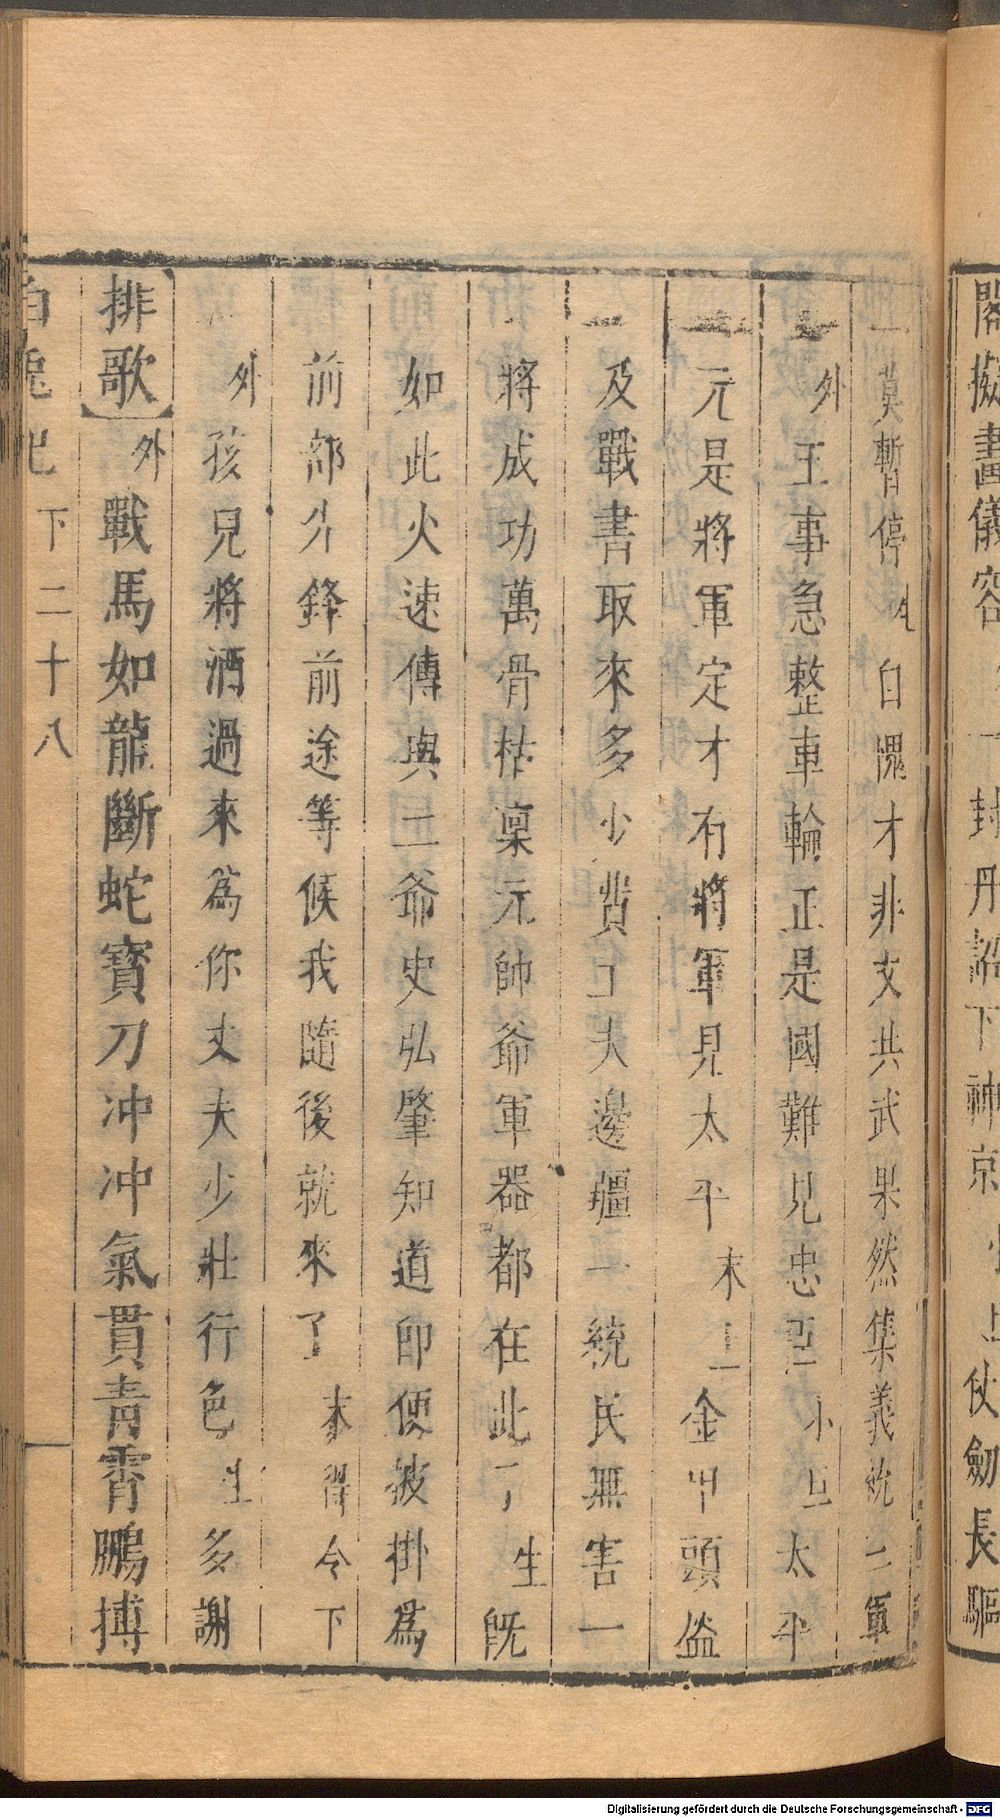 閣擬畫儀容
封丹詔下神京
上仗劒長驅
莫暫停 自愧才非文共武果然集義統三軍
外 王事急整車輪正是國難見忠臣 小旦 太平
元是將軍定才有將軍見太平 末上 金甲頭盔
及戰書取來多少費工夫邊疆一統民無害一
將成功萬骨枯稟元帥爺軍器都在此了 生 旣
如此火速傳與二爺史弘肇知道即便披掛爲
前部先鋒前途等候我隨後就來了 末 得令下
外 孩兒將酒過來爲你丈夫少壯行色 生 多謝
排歌 外 戰馬如龍斷蛇寶刀冲冲氣貫靑霄鵬摶
白兔記 下 二十八
Digitalisierung gefördert durch die Deutsche Forschungsgemeinschaft - DFG